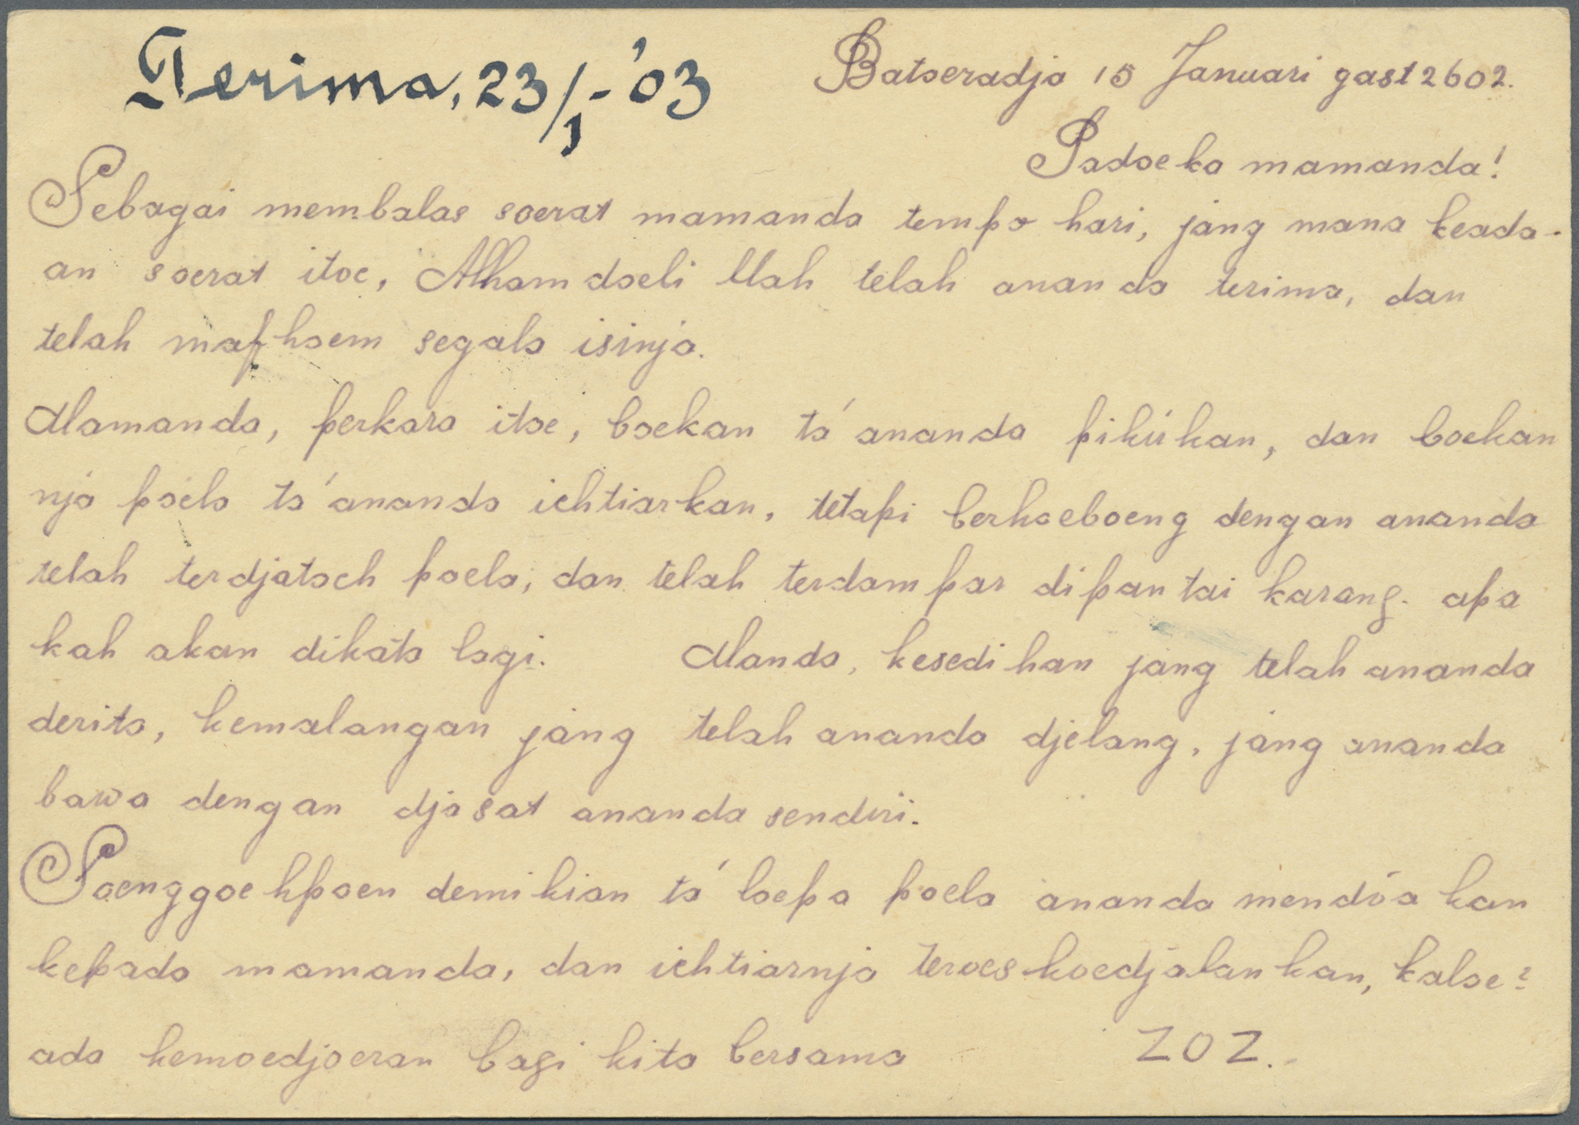 Terima, 23/1-'03
Batoeradja 15 Januari 2602.
Padoeka mamanda!
Sebagai membalas soerat mamanda tempo hari, jang mana keada-
an soerat itoe, Alhamdoeli llah telah ananda terima, dan
telah mafhoem segala isinja.
Mamanda, perkara itoe, boekan ta' ananda pikirkan, dan boekan
nja poela ta' ananda ichtiarkan, tetapi berhoeboeng dengan ananda
telah terdjatoeh poela, dan telah terdampar dipantai karang. apa
kah akan dikata lagi. Manda, kesedihan jang telah ananda
derita, kemalangan jang telah ananda djelang, jang ananda
bawa dengan djasat ananda sendiri.
Soenggoehpoen demikian ta' loepa poela ananda mendóa kan
kepada mamanda, dan ichtiarnja teroes koedjalankan, kaloe2
ada kemoedjoeran bagi kita bersama ZOZ.